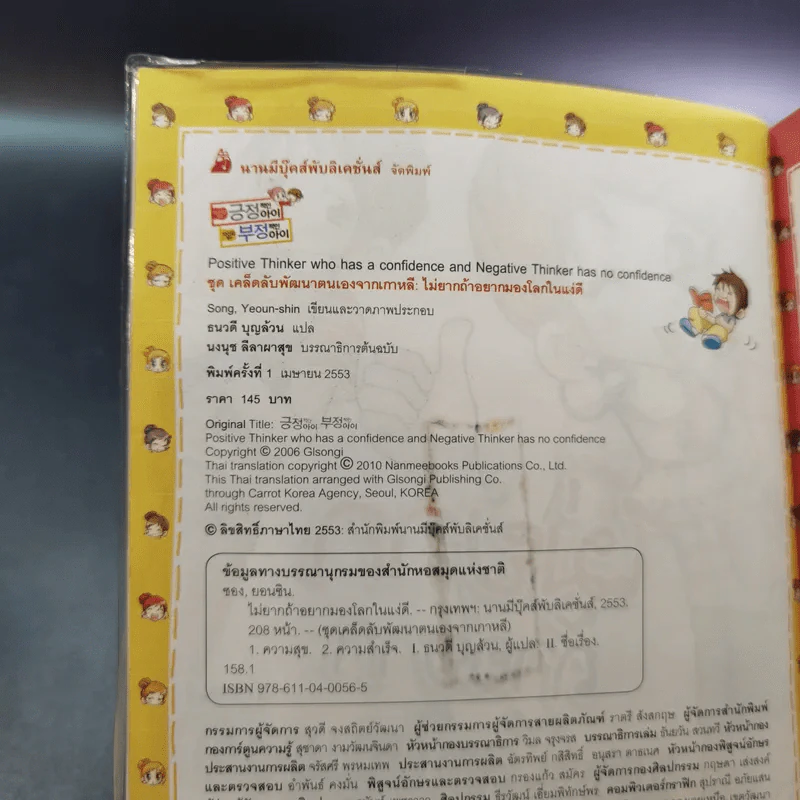 นานมีบุ๊คส์พับลิเคชั่นส์ จัดพิมพ์
긍정적인아이
부정적인아이
Positive Thinker who has a confidence and Negative Thinker has no confidence
ชุด เคล็ดลับพัฒนาตนเองจากเกาหลี: ไม่ยากถ้าอยากมองโลกในแง่ดี
Song, Yeoun-shin เขียนและวาดภาพประกอบ
ธนวดี บุญล้วน แปล
นงนุช ลีลาผาสุข บรรณาธิการต้นฉบับ
พิมพ์ครั้งที่ 1 เมษายน 2553
ราคา 145 บาท
Original Title: 긍정적인아이 부정적인아이
Positive Thinker who has a confidence and Negative Thinker has no confidence
Copyright © 2006 Glsongi
Thai translation copyright © 2010 Nanmeebooks Publications Co., Ltd.
This Thai translation arranged with Glsongi Publishing Co.
through Carrot Korea Agency, Seoul, KOREA
All rights reserved.
© ลิขสิทธิ์ภาษาไทย 2553: สำนักพิมพ์นานมีบุ๊คส์พับลิเคชั่นส์
ข้อมูลทางบรรณานุกรมของสำนักหอสมุดแห่งชาติ
ซอง, ยอนชิน.
ไม่ยากถ้าอยากมองโลกในแง่ดี. -- กรุงเทพฯ: นานมีบุ๊คส์พับลิเคชั่นส์, 2553.
208 หน้า. -- (ชุดเคล็ดลับพัฒนาตนเองจากเกาหลี)
1. ความสุข. 2. ความสำเร็จ. I. ธนวดี บุญล้วน, ผู้แปล. II. ชื่อเรื่อง.
158.1
ISBN 978-611-04-0056-5
กรรมการผู้จัดการ สุวดี จงสถิตย์วัฒนา ผู้ช่วยกรรมการผู้จัดการสายผลิตภัณฑ์ ราตรี สังสกฤษ ผู้จัดการสำนักพิมพ์
กองการ์ตูนความรู้ สุชาดา งามวัฒนจินดา หัวหน้ากองบรรณาธิการ วิมล จรุงจรส บรรณาธิการเล่ม หัวหน้ากอง
ประสานงานการผลิต จรัสศรี พรหมเทพ ประสานงานการผลิต ฉัตรทิพย์ กสีสิทธิ์ อนุสรา หัวหน้ากองพิสูจน์อักษร
และตรวจสอบ อำพันธ์ คงมั่น พิสูจน์อักษรและตรวจสอบ กรองแก้ว สมัคร ผู้จัดการกองศิลปกรรม กฤษดา
ศิลปกรรม ธีรวัฒน์ เอี่ยมพิทักษ์พร คอมพิวเตอร์กราฟิก สุปราณี